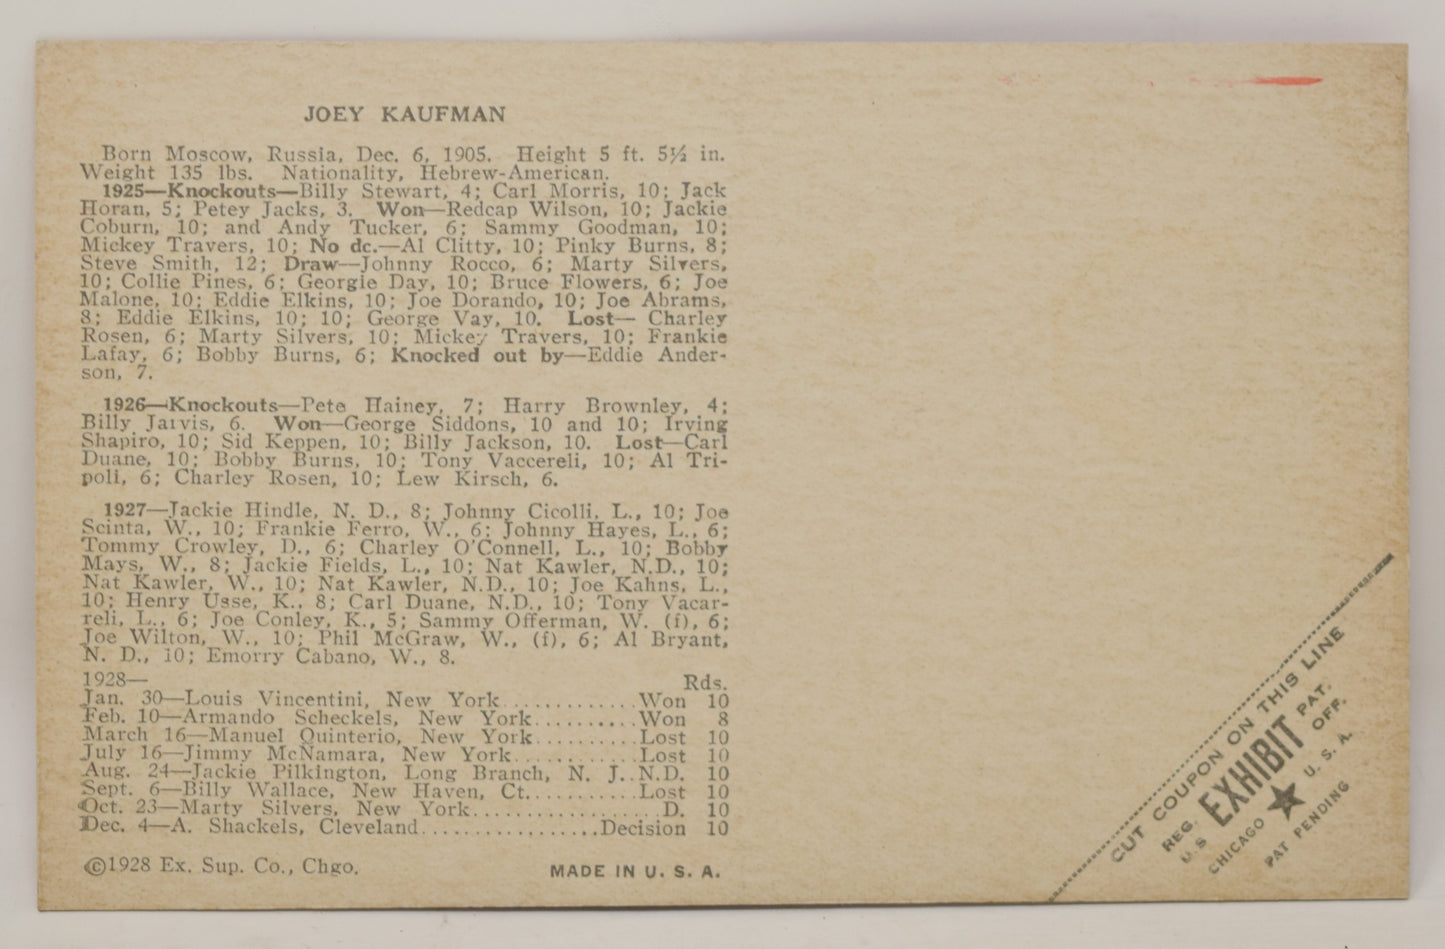 JOEY KAUFMAN
Born Moscow, Russia, Dec. 6, 1905. Height 5 ft. 5½ in.
Weight 135 lbs. Nationality, Hebrew-American.
1925—Knockouts—Billy Stewart, 4; Carl Morris, 10; Jack
Horan, 5; Petey Jacks, 3. Won—Redcap Wilson, 10; Jackie
Coburn, 10; and Andy Tucker, 6; Sammy Goodman, 10;
Mickey Travers, 10; No dc.—Al Clitty, 10; Pinky Burns, 8;
Steve Smith, 12; Draw—Johnny Rocco, 6; Marty Silvers,
10; Collie Pines, 6; Georgie Day, 10; Bruce Flowers, 6; Joe
Malone, 10; Eddie Elkins, 10; Joe Dorando, 10; Joe Abrams,
8; Eddie Elkins, 10; 10; George Vay, 10. Lost— Charley
Rosen, 6; Marty Silvers, 10; Mickey Travers, 10; Frankie
Lafay, 6; Bobby Burns, 6; Knocked out by—Eddie Ander-
son, 7.
1926—Knockouts—Pete Hainey, 7; Harry Brownley, 4;
Billy Jarvis, 6. Won—George Siddons, 10 and 10; Irving
Shapiro, 10; Sid Keppen, 10; Billy Jackson, 10. Lost—Carl
Duane, 10; Bobby Burns, 10; Tony Vaccereli, 10; Al Tri-
poli, 6; Charley Rosen, 10; Lew Kirsch, 6.
1927—Jackie Hindle, N. D., 8; Johnny Cicolli, L., 10; Joe
Scinta, W., 10; Frankie Ferro, W., 6; Johnny Hayes, L., 6;
Tommy Crowley, D., 6; Charley O'Connell, L., 10; Bobby
Mays, W., 8; Jackie Fields, L., 10; Nat Kawler, N.D., 10;
Nat Kawler, W., 10; Nat Kawler, N.D., 10; Joe Kahns, L.,
10; Henry Usse, K., 8; Carl Duane, N.D., 10; Tony Vacar-
reli, L., 6; Joe Conley, K., 5; Sammy Offerman, W. (f), 6;
Joe Wilton, W., 10; Phil McGraw, W., (f), 6; Al Bryant,
N. D., 10; Emorry Cabano, W., 8.
1928— Rds.
Jan. 30—Louis Vincentini, New York.............Won 10
Feb. 10—Armando Scheckels, New York..........Won 8
March 16—Manuel Quinterio, New York..........Lost 10
July 16—Jimmy McNamara, New York............Lost 10
Aug. 24—Jackie Pilkington, Long Branch, N. J..N.D. 10
Sept. 6—Billy Wallace, New Haven, Ct...........Lost 10
Oct. 23—Marty Silvers, New York..................D. 10
Dec. 4—A. Shackels, Cleveland.................Decision 10
©1928 Ex. Sup. Co., Chgo. MADE IN U. S. A.
CUT COUPON ON THIS LINE
REG. EXHIBIT PAT.
U.S OFF.
CHICAGO ★ U. S. A.
PAT PENDING